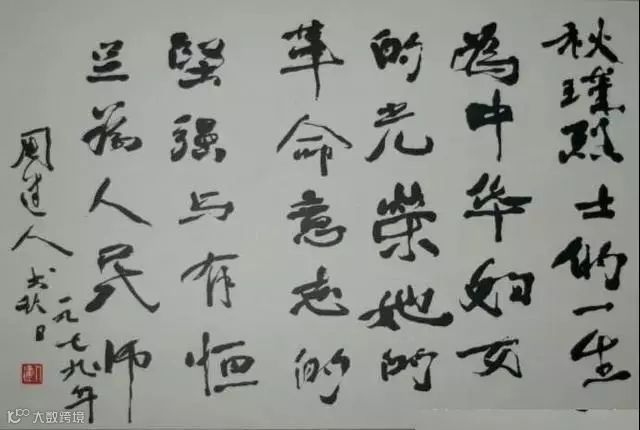 秋瑾烈士的一生
為中华妇女
的光榮她的
革命意志的
堅强与有恒
為人民师
一九七九年
周建人 秋日
大数跨境